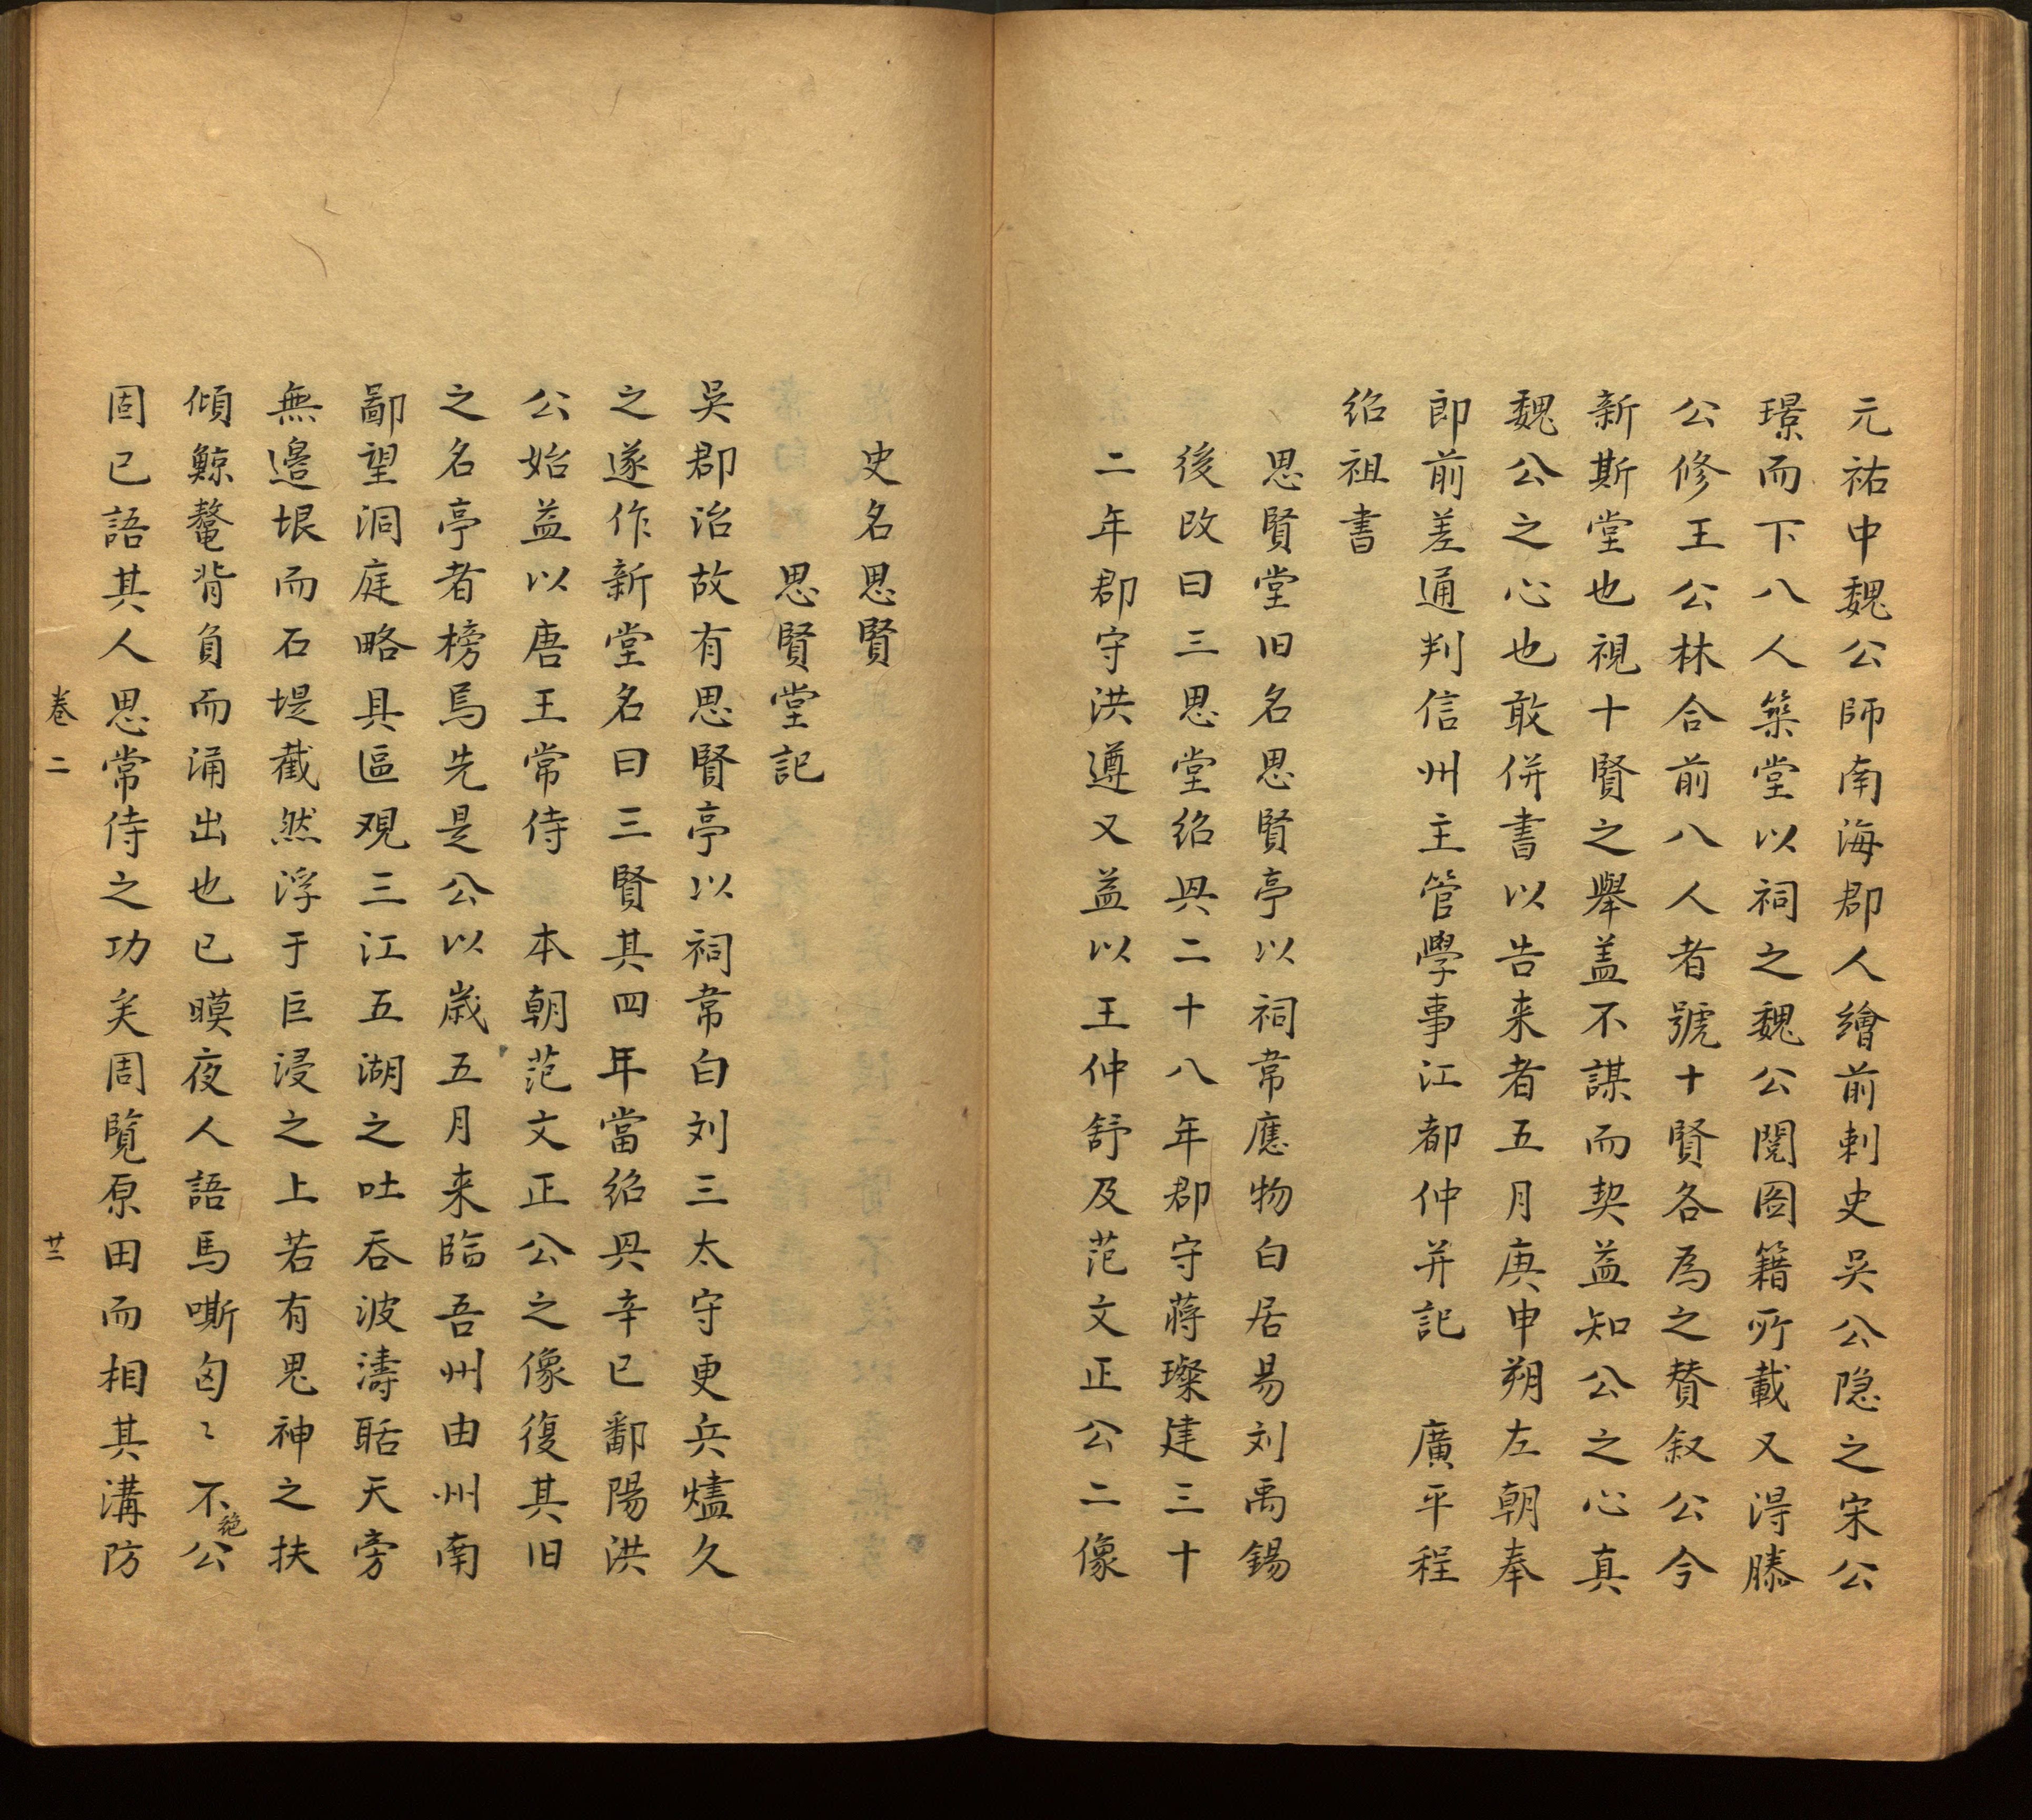 元祐中魏公師南海郡人繪前刺史吴公隐之宋公
璟而下八人築堂以祠之魏公閱圖籍所載又淂滕
公修王公林合前八人者號十賢各為之賛叙公今
新斯堂也視十賢之舉盖不謀而契益知公之心真
魏公之心也敢併書以告来者五月庚申朔左朝奉
郎前差通判信州主管學事江都仲并記　廣平程
紹祖書
思賢堂旧名思賢亭以祠韋應物白居易刘禹錫
後改曰三思堂紹興二十八年郡守蔣璨建三十
二年郡守洪遵又益以王仲舒及范文正公二像
史名思賢
思賢堂記
吴郡治故有思賢亭以祠韋白刘三太守更兵燼久
之遂作新堂名曰三賢其四年當紹興辛巳鄱陽洪
公始益以唐王常侍　本朝范文正公之像復其旧
之名亭者榜焉先是公以歳五月来臨吾州由州南
鄙望洞庭略具區观三江五湖之吐吞波濤聒天旁
無邉垠而石堤截然浮于巨浸之上若有鬼神之扶
傾鯨鼇背負而涌出也已暯夜人語馬嘶匈〻不絶公
固已語其人思常侍之功矣周覧原田而相其溝防
卷二　廿三